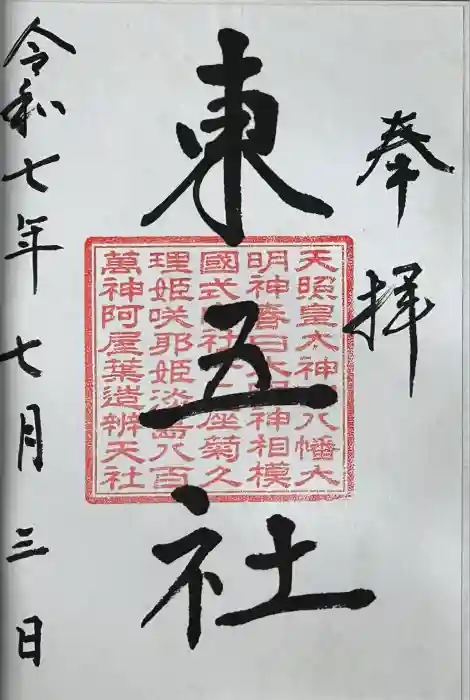 奉拝
東五社
天照皇大神 八幡大
明神春日大明神相模
國式 社 座菊久
理姫咲耶姫淡 八百
萬神阿屋葉造辨天社
令和七年七月三日